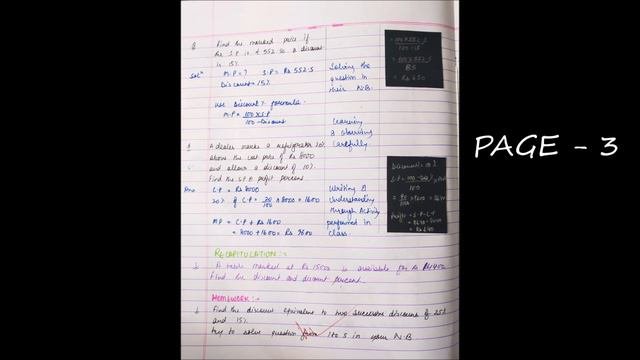 Q Find the marked price if
the S.P is ₹ 552.50 a discount
is 15%
Solⁿ M.P = ? S.P = Rs 552.5
Discount = 15%
Use Discount% formula
M.P = 100 x S.P
100 - Discount
Solving the
question in
their N.B.
Learning
& observing
Carefully
100 x 552.5
100 - 15
= 100 x 552.5
85
= Rs 650
PAGE - 3
Q A dealer marks a refrigerator 20%
above the cost price of Rs 8000
and allows a discount of 10%
Find the S.P & profit percent
Ans C.P = Rs 8000
20% of C.P = 20/100 x 8000 = 1600
MP = C.P + Rs 1600
= 8000 + 1600 = Rs 9600
Writing &
Understanding
through Activity
performed in
class.
Discount = 10%
Profit = S.P - C.P
= Rs 640
RECAPITULATION:-
A table marked at Rs 15000 is available for Rs
Find the discount and discount percent.
HOMEWORK:-
Find the discount equivalent to two successive discounts of 25%
and 15%
try to solve question from 1 to 5 in your N.B